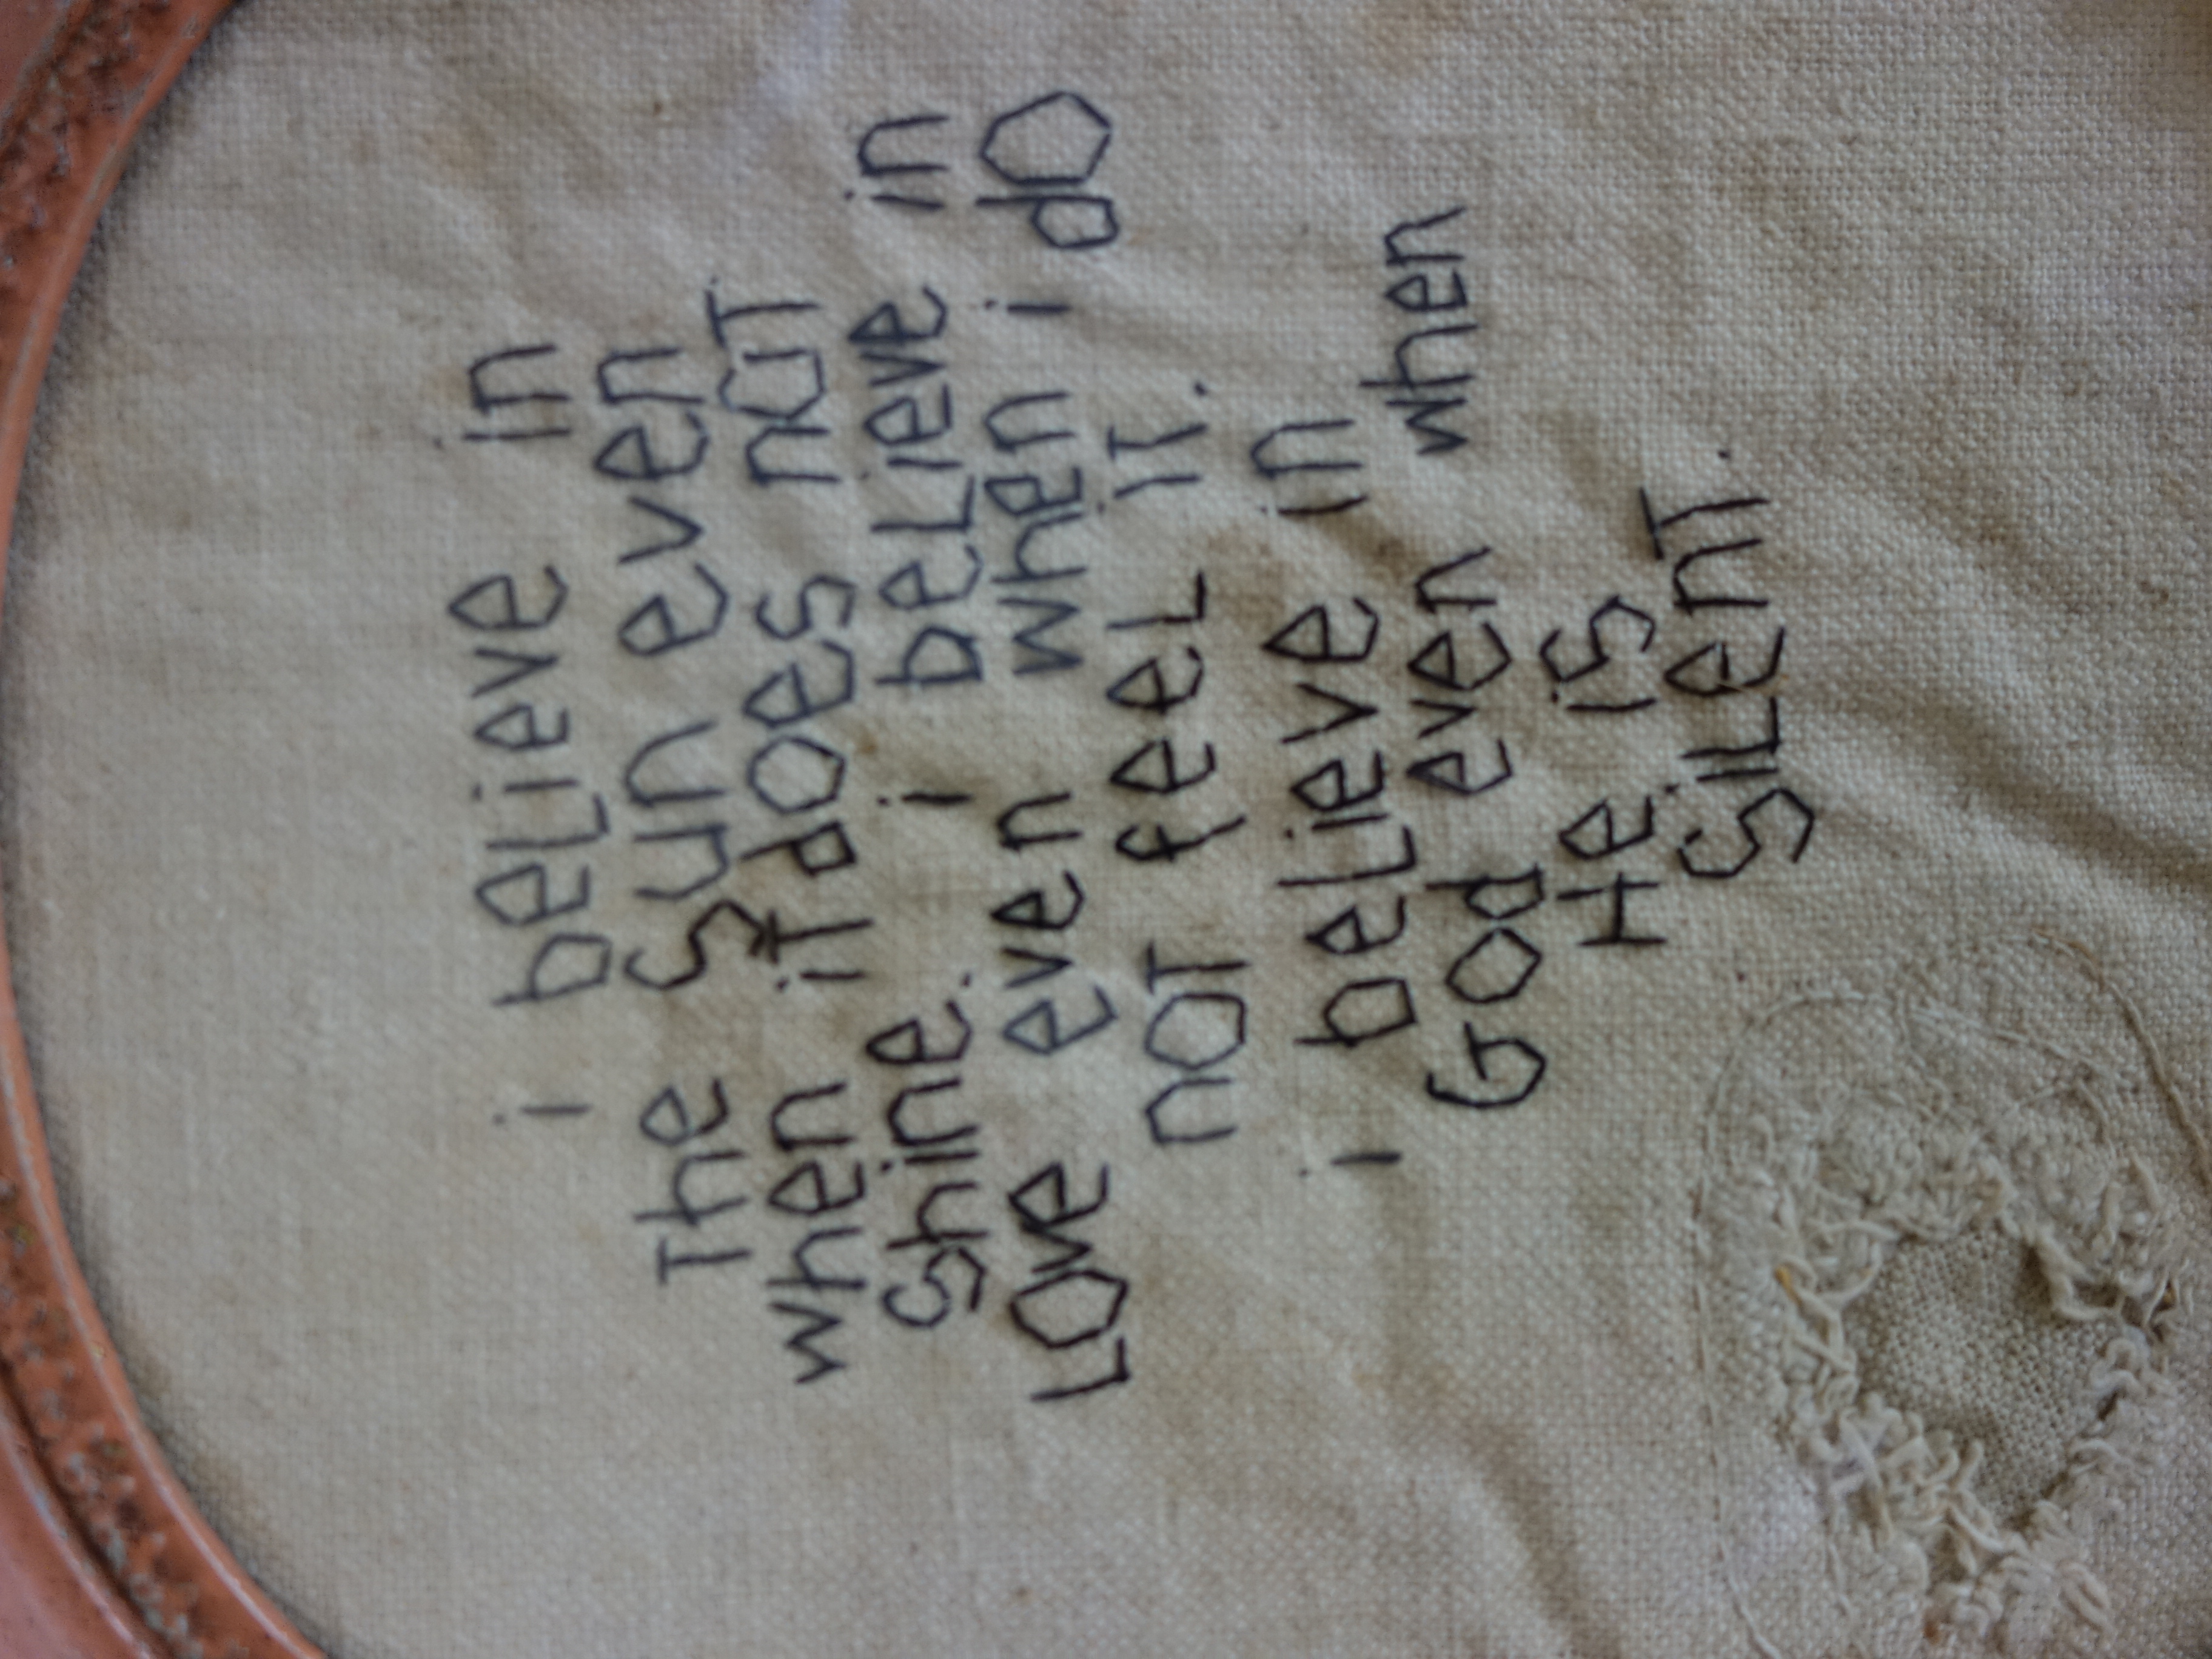 i beLieve in
The Sun even
when iT does noT
Shine. i beLieve in
LOve even when i dO
noT feeL iT.
i beLieve in
God even when
He is
SiLenT.